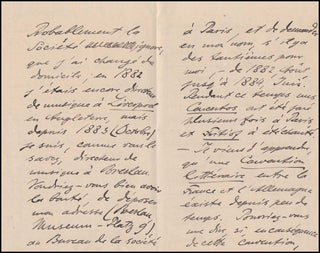 Probablement la
Société ignore,
que j'ai changé de
domicile; en 1882
j'étais encor directeur
de musique à Liverpool
en Angleterre, mais
depuis 1883 (Octobre)
je suis, comme vous le
savez, directeur de
musique à Breslau.
Voudriez-vous bien avoir
la bonté, de déposer
mon adresse (Breslau
Museum-Platz 9)
au Bureau de la Société
à Paris, et de demander
en mon nom, s'il y a
des tantièmes pour
moi, - de 1882 Juin
jusqu'à 1884, Juin.
Pendant ce temps mes
ont été joués
plusieurs fois à Paris
et été chanté
- Je viens d'apprendre
qu'une Convention
littéraire entre la
France et l'Allemagne
existe depuis peu de
temps. Pourriez-vous
me dire, si en conséquence
de cette Convention,